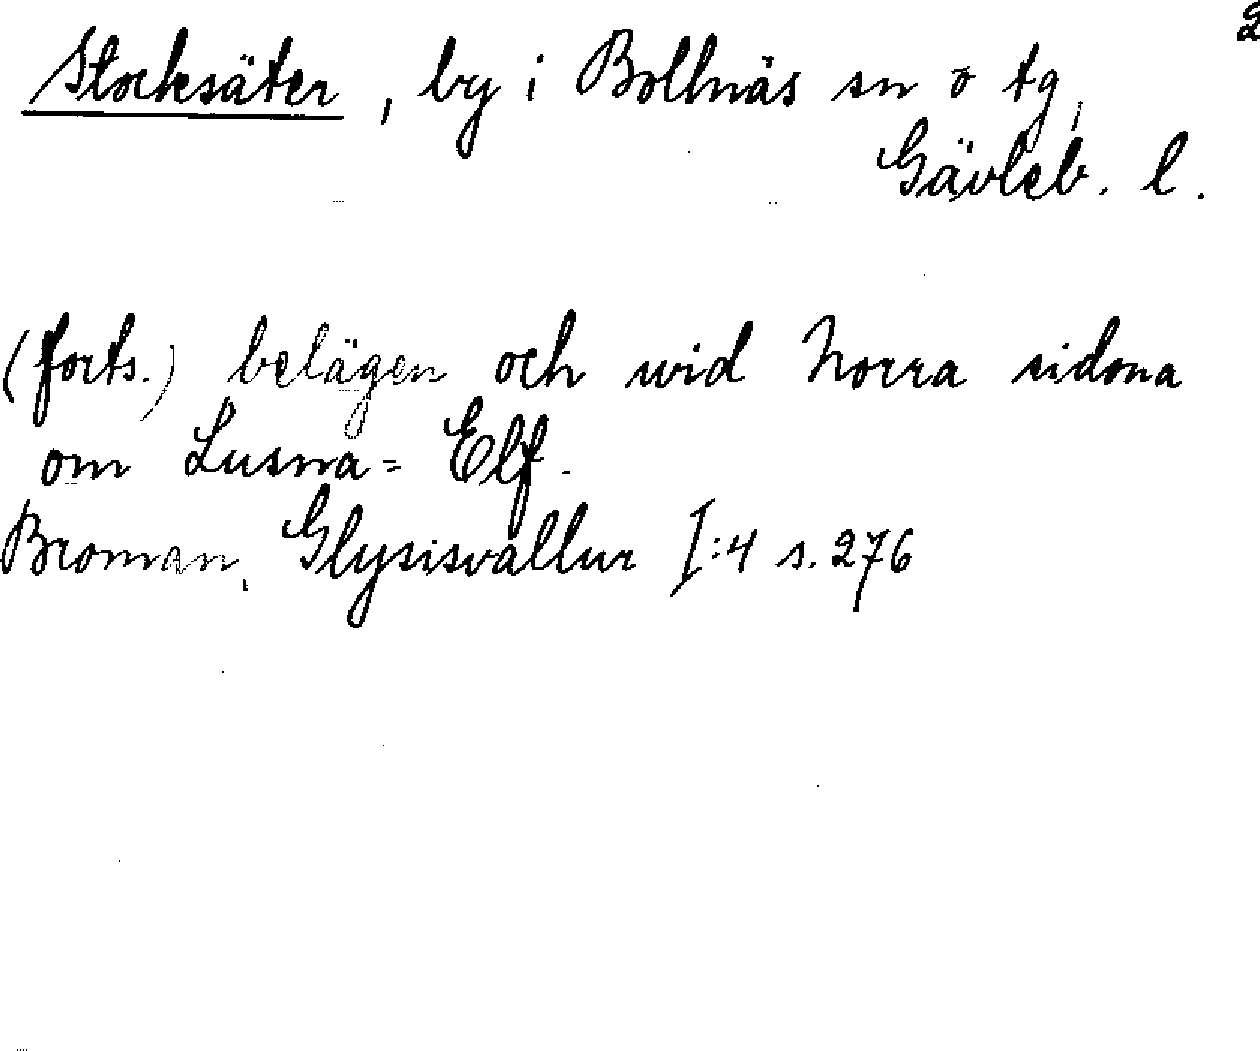 2
Stocksäter, by i Bollnäs sn o tg,
Gävleb. l.
(forts.) belägen och wid Norra sidona
om Lusna= Elf.
Broman, Glysisvallur I:4 s. 276